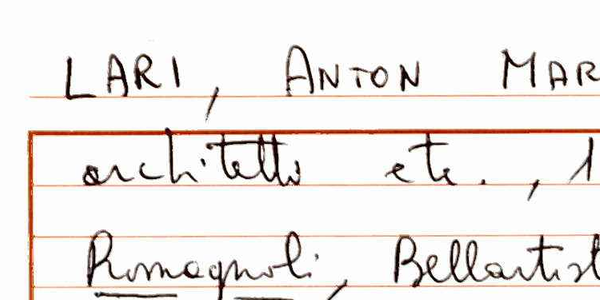 LARI, ANTON MAR
architetto etc., 1
Romagnoli, Bellartist